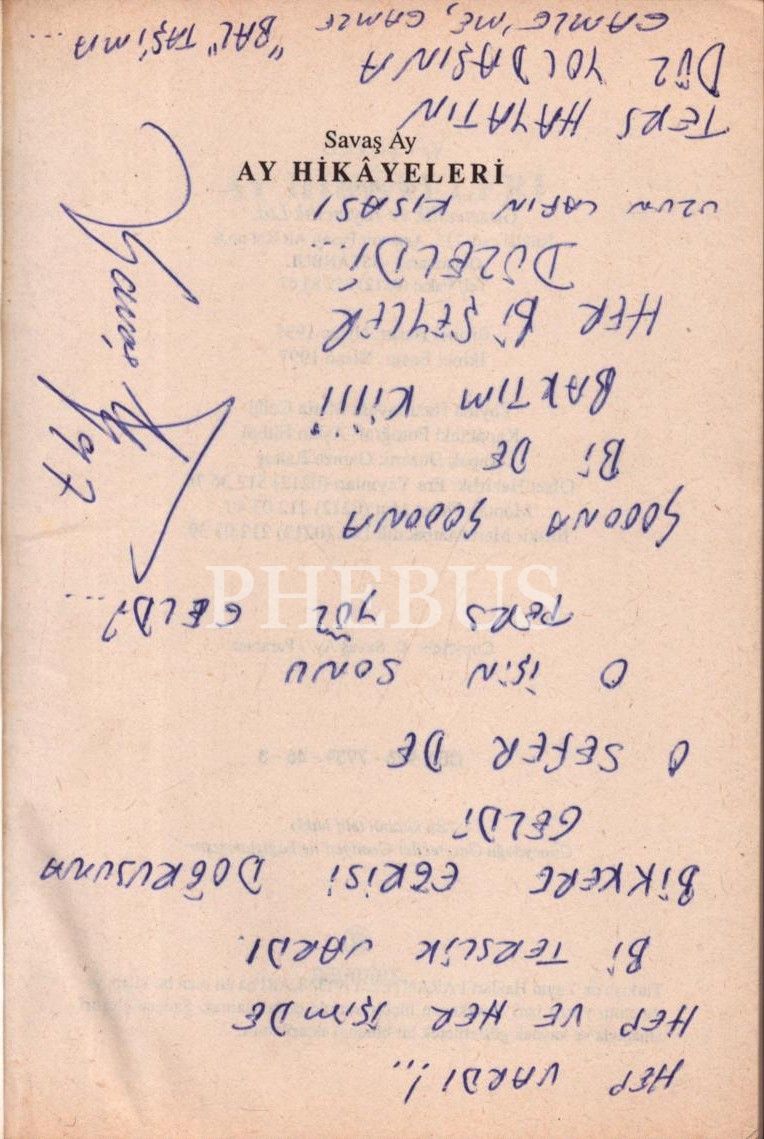 Savaş Ay
AY HİKÂYELERİ
HEP VARDI!..
HEP VE HER İŞİMDE
Bİ TERSLİK VARDI.
BİKKERE EĞRİSİ DOĞRUSUNA
GELDİ
O SEFER DE
O İŞİN SONU
TERS YÜZ GELDİ...
SOOONA SOOONA
Bİ DE
BAKTIM Kİİİİ
HER Bİ ŞEYLER
DÜZELDİ...
UZUN LAFIN KISASI
TERS HAYATIN
DÜZ YOLDAŞINA
"BAL" TAŞIMA...
Savaş Ay
97
PHEBUS